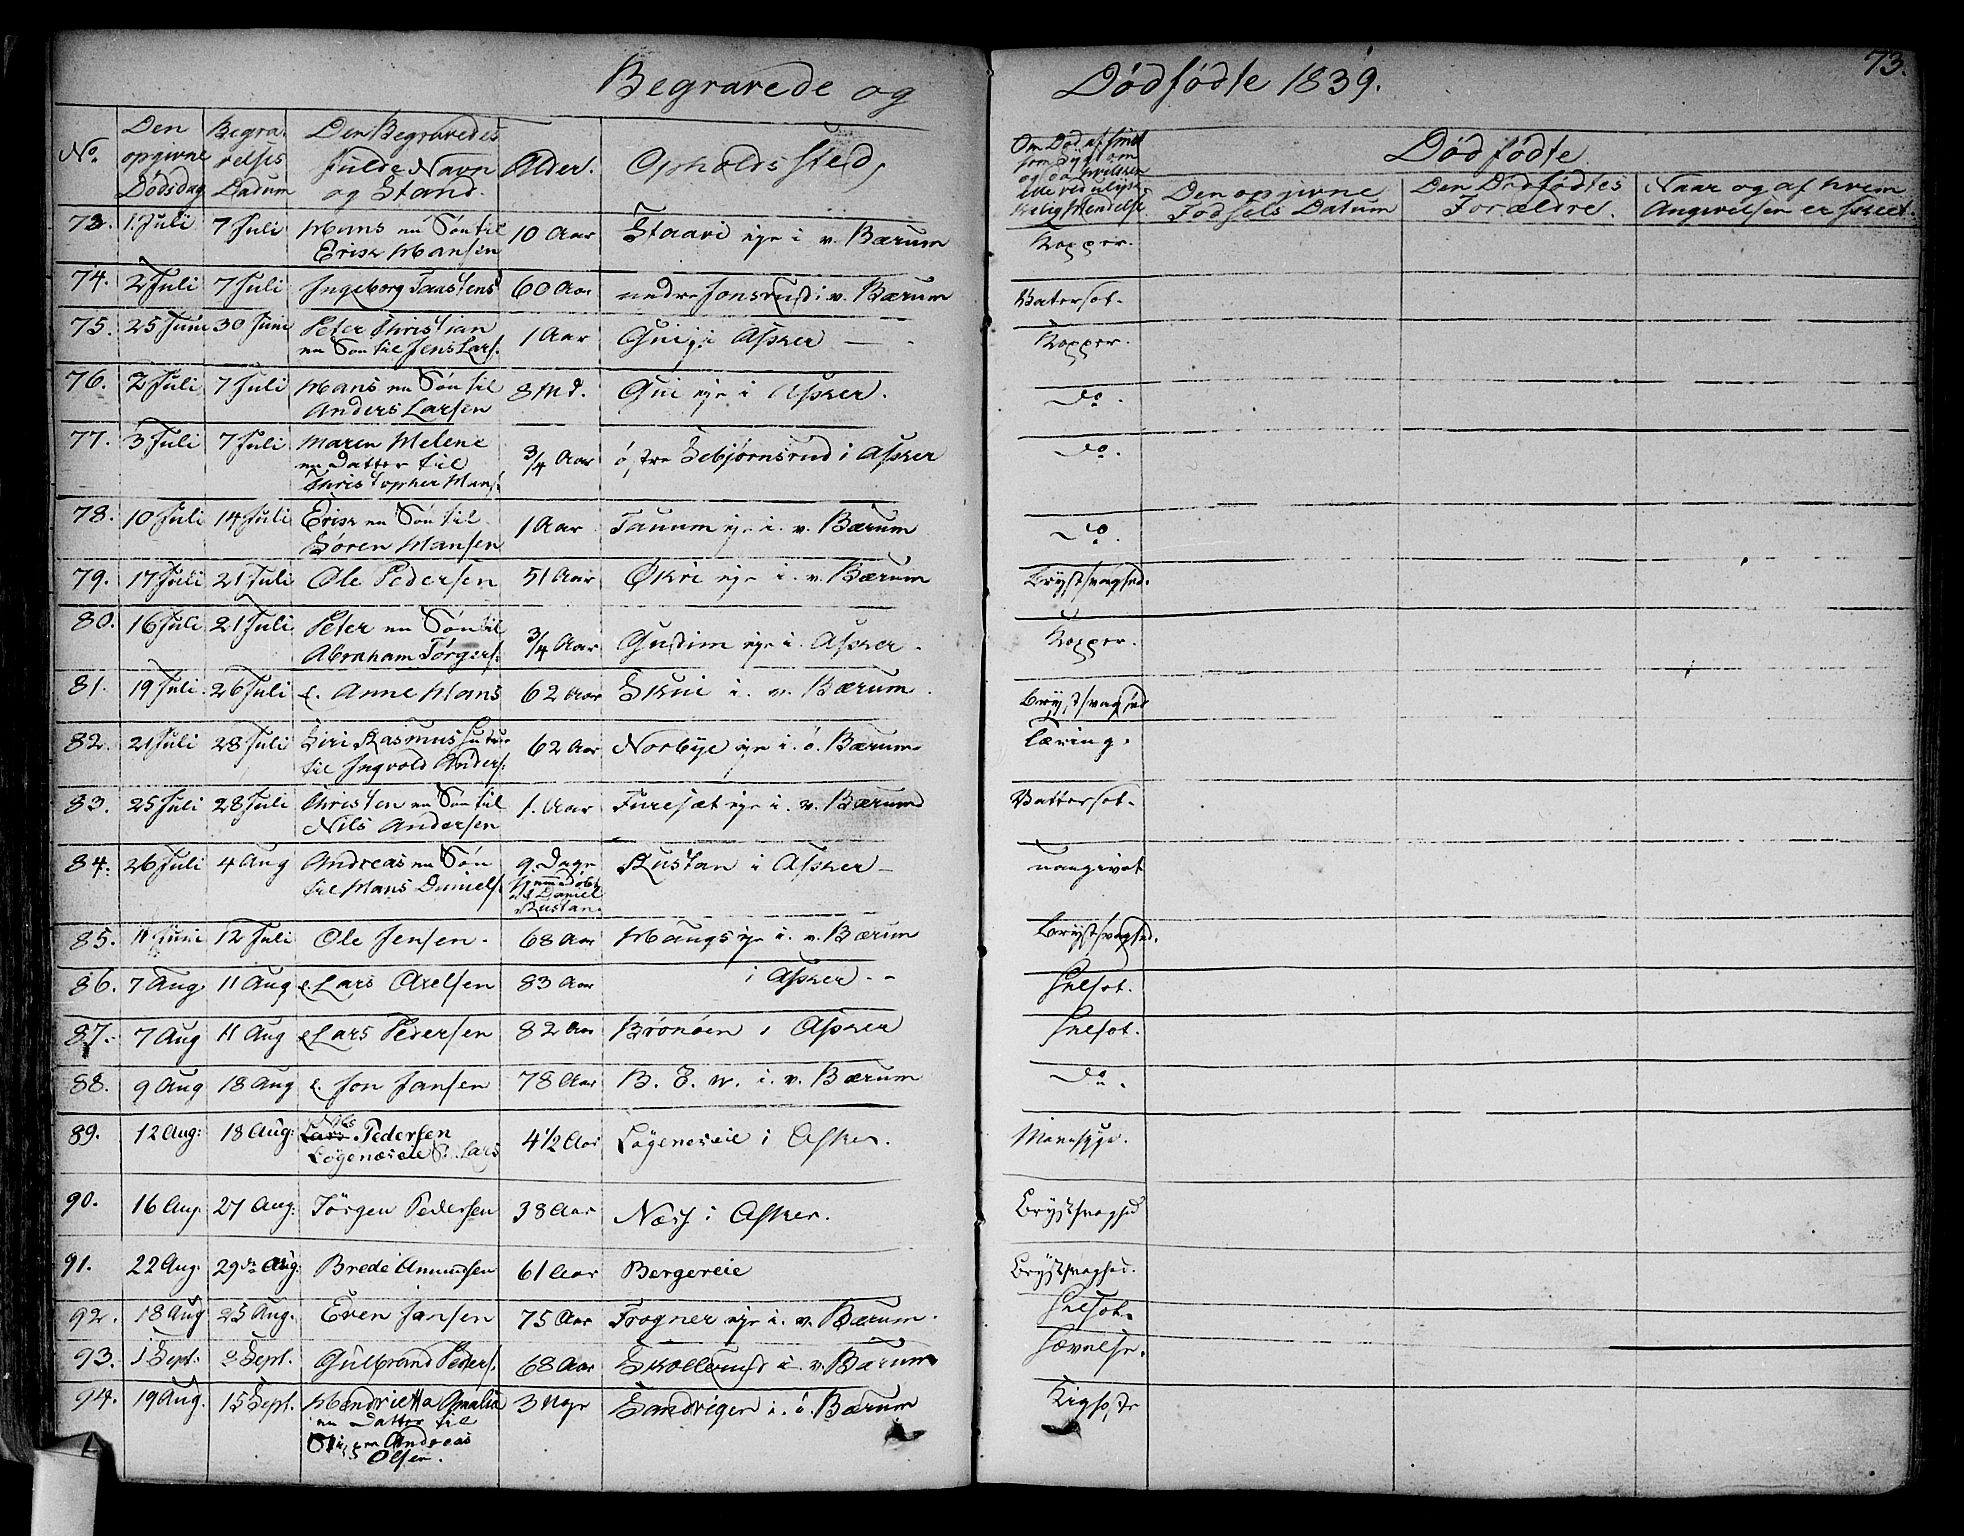 Begravede og Dødfødte 1839. 73.
No. Den opgivne Dødsdag Begravelses Datum Den Begravedes fulde Navn og Stand. Alder. Opholdssted Om Død af smit som Sygdom og da hvilken eller ved ulykkelig Hændelse
Dødfødte
Den opgivne Fødsels Datum Den Dødfødtes Forældre. Naar og af hvem Angivelsen er skeet.
73. 1 Juli 7 Juli Hans en Søn til Erik Hansen 10 Aar Staavi eje i v. Bærum Kopper.
74. 2 Juli 7 Juli Ingeborg Taastens 60 Aar nedre Jonsrud i v. Bærum Vatersot.
75. 25 Juni 30 Juni Peter Christian en Søn til Jens Lars. 1 Aar Gui i Asker Kopper.
76. 2 Juli 7 Juli Hans en Søn til Anders Larsen 8 Md. Gui eje i Asker. Do.
77. 3 Juli 7 Juli Maren Helene en Datter til Christopher Hans. 3/4 Aar østre Sebjørnsrud i Asker Do.
78. 10 Juli 14 Juli Erik en Søn til Søren Hansen 1 Aar Tanum eje i v. Bærum Do.
79. 17 Juli 21 Juli Ole Pedersen 51 Aar Økri eje i v. Bærum Brystsvaghed.
80. 16 Juli 21 Juli Peter en Søn til Abraham Tørgers. 3/4 Aar Gudim eje i Asker. Kopper.
81. 19 Juli 26 Juli e. Anne Hans 62 Aar Skui i v. Bærum. Brystsvaghed
82. 21 Juli 28 Juli Siri Rasmus Hustru til Ingvold Anders. 62 Aar Norbye eje i ø. Bærum Tæring.
83. 25 Juli 28 Juli Christen en Søn til Nils Andersen 1. Aar Furesæt eje i v. Bærum Vattersot.
84. 26 Juli 4 Aug Andreas en Søn til Hans Daniels. 9 Dage Hjemmedøbt af Daniel Rustan. Rustan i Asker uangivet
85. 11 Juni 12 Juli Ole Jensen. 68 Aar Haugs eje i v. Bærum Brystsvaghed.
86. 7 Aug. 11 Aug e. Lars Axelsen 83 Aar i Asker Helsot.
87. 7 Aug 11 Aug e. Lars Pedersen 82 Aar Brønøen i Asker Helsot.
88. 9 Aug 18 Aug e. Jon Jansen 78 Aar B. E. w. i. v. Bærum Do.
89. 12 Aug: 18 Aug: Nils Lars Pedersen Løgeneseie S. Lars 4 1/2 Aar Løgeneseie i Asker. Mavesyge.
90. 16 Aug. 27 Aug: Jørgen Pedersen 38 Aar Næss i Asker. Brystsvaghed
91. 22 Aug. 29de Aug: Brede Amundsen 61 Aar Bergereie Brystsvaghed.
92. 18 Aug 25 Aug. Even Jansen 75 Aar Frogner eje i. v. Bærum. Helsot.
93. 1 Sept: 2 Sept. Gulbrand Peders. 68 Aar Skollerud i v. Bærum Hævelse.
94. 19 Aug. 15 Sept. Hendrietta Amalia en Datter til Andreas Olsen. 3 Uger Sandvigen i. ø. Bærum Kighoste